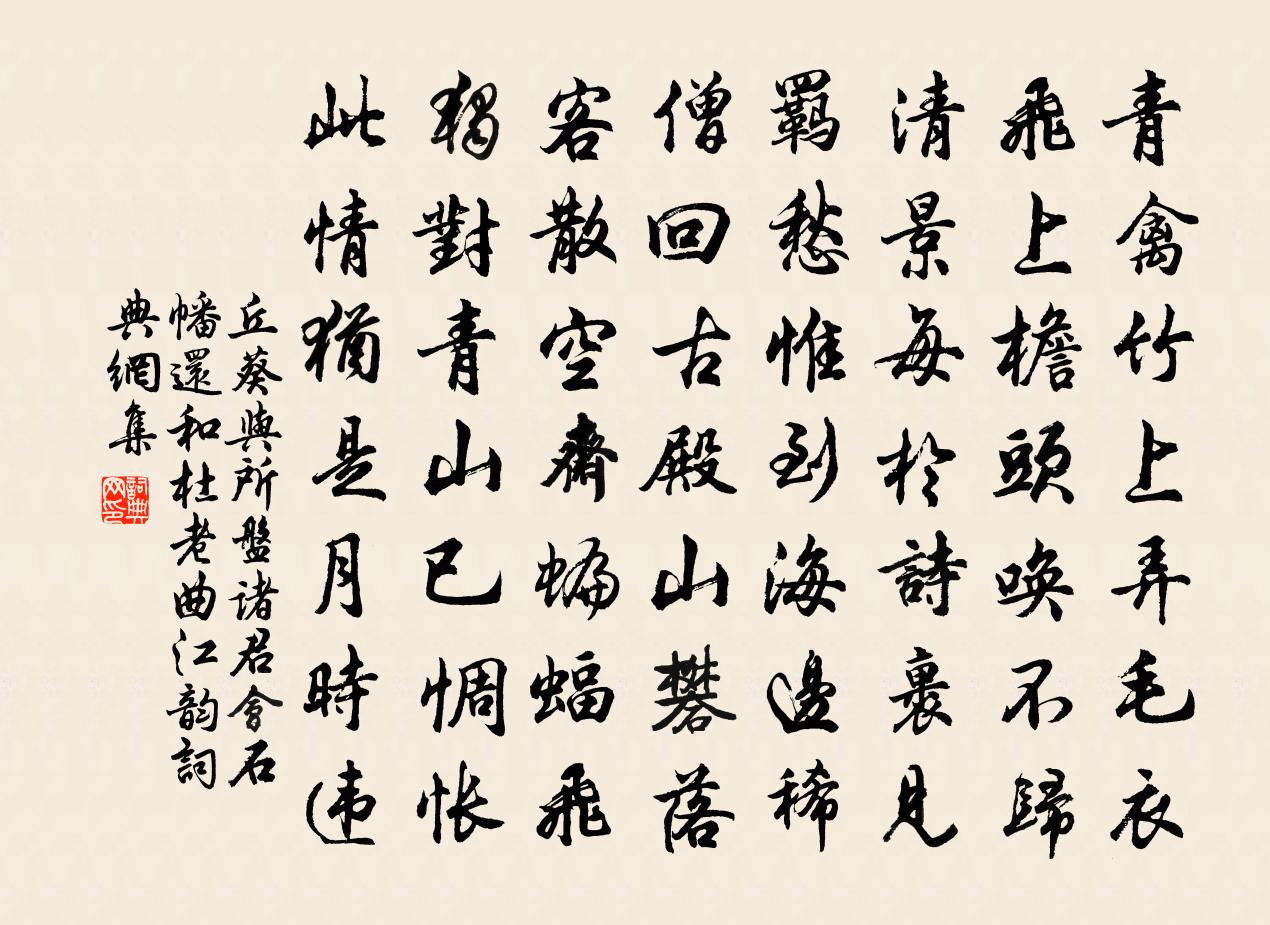 青禽竹上弄毛衣
飛上檐頭喚不歸
清景每於詩裏見
羈愁惟到海邊稀
僧回古殿山礬落
客散空齋蝙蝠飛
獨對青山已惆悵
此情猶是月時違
丘葵與所盤諸君會石
幡還和杜老曲江韵詞
典網集
詞典
网印